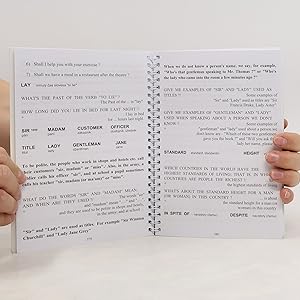 6) Shall I help you with your exercise ?
7) Shall we have a meal in a restaurant after the theatre ?
LAY
WHAT'S THE PAST OF THE VERB "TO LIE" ?
The Past of the ... is "lay"
HOW LONG DID YOU LIE IN BED FOR LAST NIGHT ?
I lay in bed
for ... hours last night
SIR MADAM CUSTOMER OFFICER
TITLE LADY GENTLEMAN JANE
To be polite, the people who work in shops and hotels etc. call
their customers "sir", "madam" or "miss". In the army, a
soldier calls his officer "sir", and at school a pupil sometimes
calls his teacher "sir", madam (or ma'am) or "miss".
WHAT DO THE WORDS "SIR" AND "MADAM" MEAN,
AND WHEN ARE THEY USED ?
The words "sir"
and "madam" mean " ... " and " ... ",
and they are used to be polite in shops and hotels,
in the army, and at school
"Sir" and "Lady" are used as titles. For example "Sir Winston
Churchill" and "Lady Jane Grey".
179
When we do not know a person's name, we say, for example,
"Who's that gentleman speaking to Mr. Thomas ?" or "Who's
the lady who came into the room a few minutes ago ?"
GIVE ME EXAMPLES OF "SIR" AND "LADY" USED AS
TITLES !
Some examples of
"Sir" and "Lady" used as titles are "Sir
Francis Drake, Lady Anne"
GIVE ME EXAMPLES OF "GENTLEMAN" AND "LADY"
USED WHEN SPEAKING ABOUT A PERSON WE DON'T
KNOW !
Some examples of
"gentleman" and "lady" used about a person we
don't know are : "Which of these two gentlemen
STANDARD HEIGHT
WHICH COUNTRIES IN THE WORLD HAVE THE
HIGHEST STANDARDS OF LIVING; THAT IS, IN WHICH
COUNTRIES ARE PEOPLE THE RICHEST ?
the highest standards of
WHAT'S ABOUT THE STANDARD HEIGHT FOR A MAN
OR WOMAN IN THIS COUNTRY ?
is about
the standard height for a man (or
woman) in this country
IN SPITE OF DESPITE
180